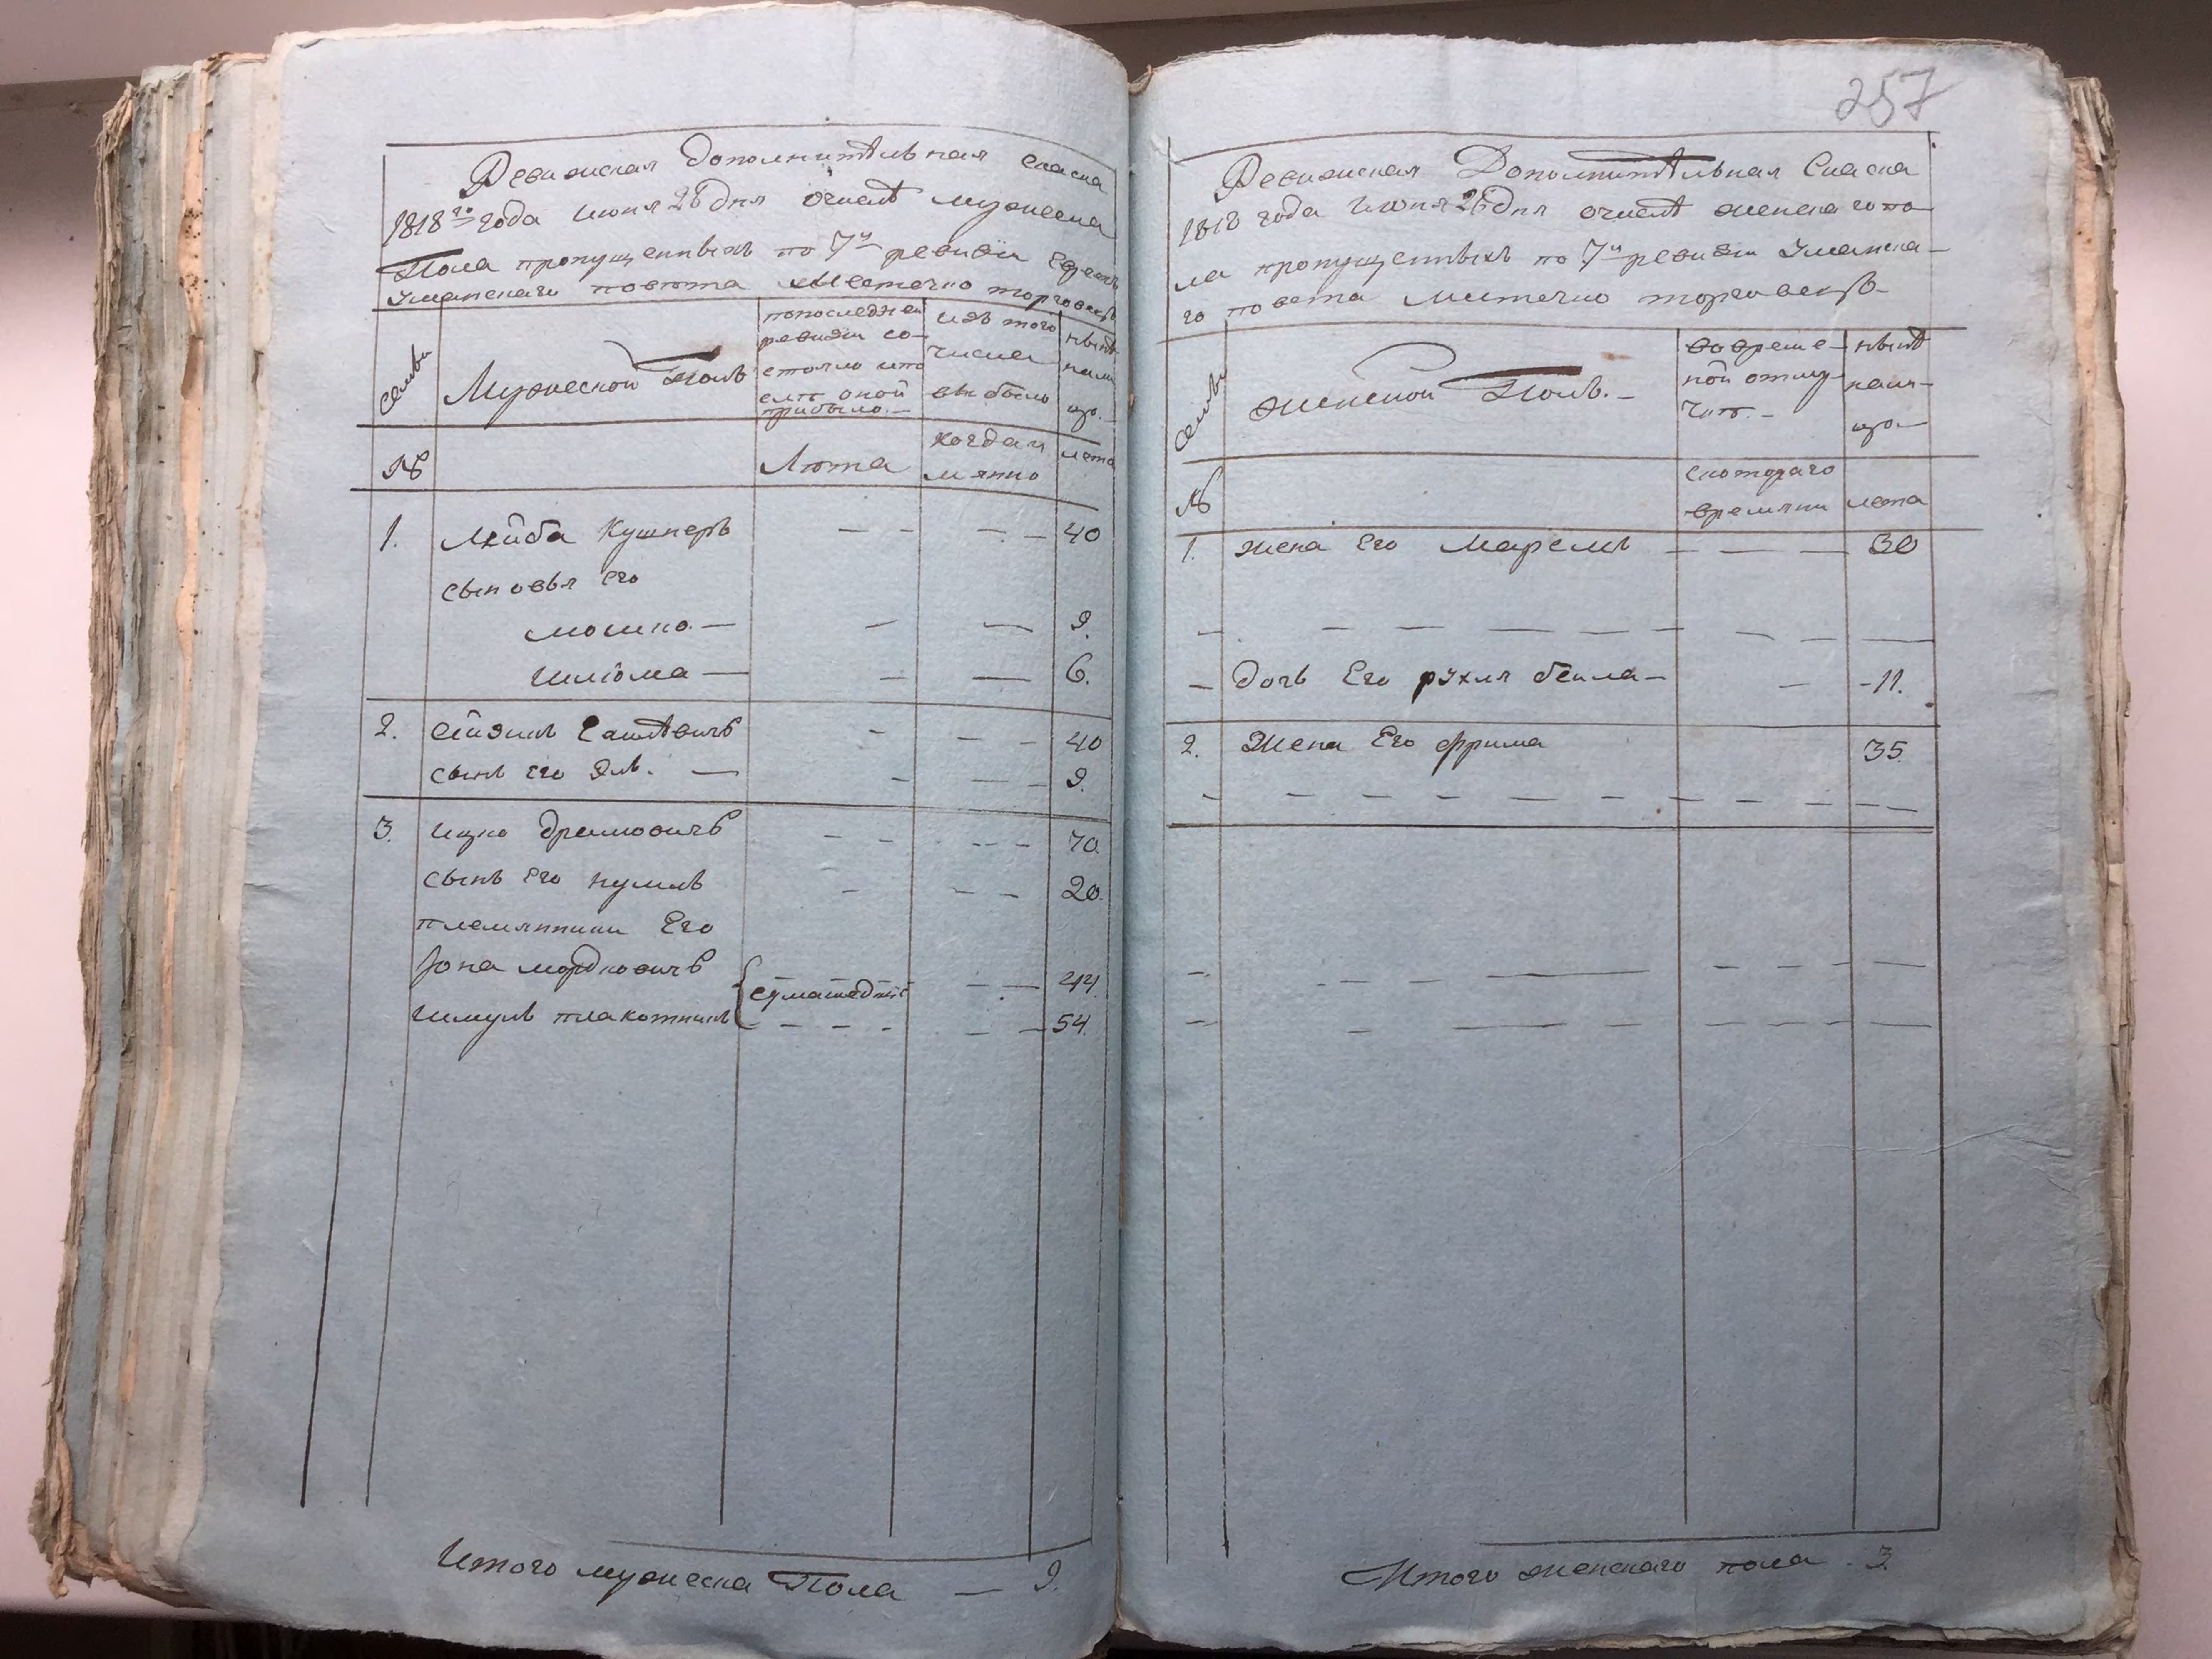 Ревижская Дополнительная Скаска
1818го года июня 26 дня очислѣ мужеска
Пола пропущенныхъ по 7й ревизіи Евреевъ
Уманскаго повѣта мѣстечко торговскъ
Семьи
Мужеской Полъ
попоследней
ревизіи со-
стояло или
послѣ оной
прибыло.-
изъ того
числа
выбыло
нынѣ
нали
цо.-
№
Лѣта
когда и
мянно
лета
1. Лейба Кушнеръ — — — — 40
сыновья Его
мошко — — — 9.
шліома — — — 6.
2. ейзикъ - — — 40
сынъ его — — — — 9.
3. ицко — — — — — 70.
сынъ Его — — — 20.
племянники Его
Іона мордковичъ сумашедшіе — — 44.
шмуль плакотникъ — — — — — — 54.
Итого мужеска Пола — 9.
257
Ревижская Дополнительная Скаска
1818 года июня 26 дня очислѣ женскаго по-
ла пропущенныхъ по 7й ревизіи Уманска-
го повета мѣстечко торговскъ-
Семьи
Женской Полъ.-
вовремен-
ной отлу-
чкѣ.-
нынѣ
нали-
цо-
№
скотораго
времяни
лета
1. жена Его Маремъ — — — 30
— Дочь Его рухля бейла — — - 11.
2. Жена Его фрима 35.
Итого женскаго пола - 3.